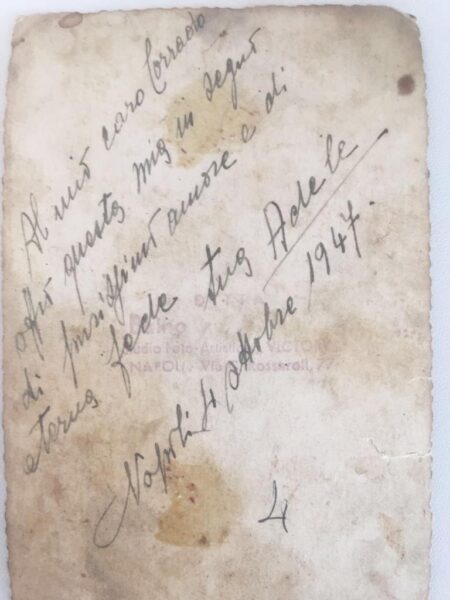 Al mio caro Corrado
offro questa mia in segno
di purissimo amore e di
eterna fede tua Adele
Napoli ottobre 1947.
DITTA
Foto-Artistico VICTOR
NAPOLI - Via Rossaroll,
4